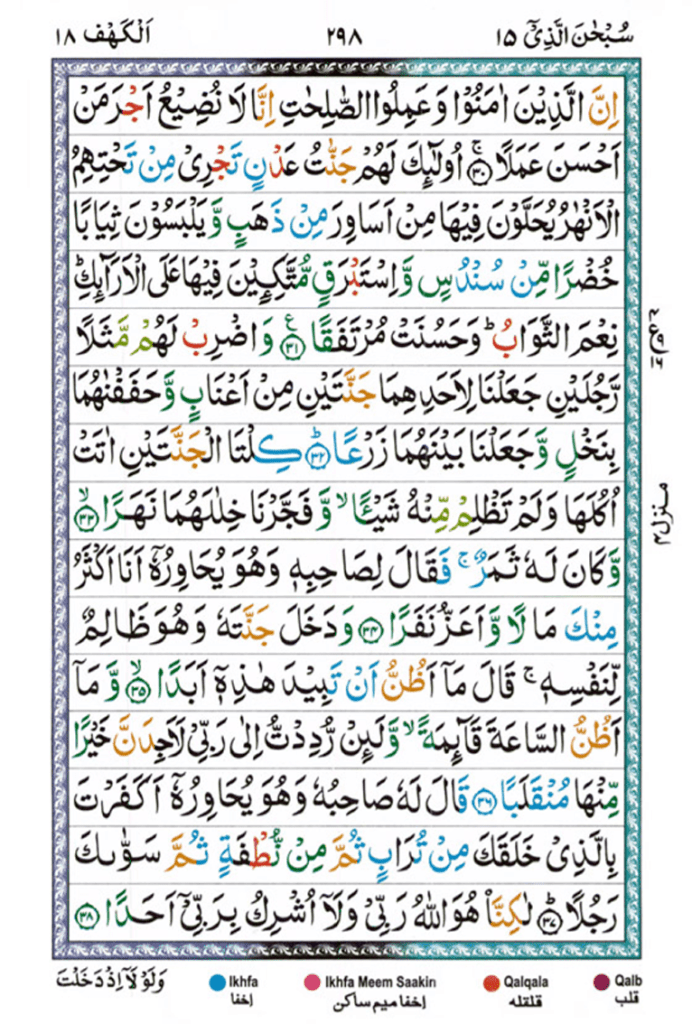 سُبْحٰنَ الَّذِیْۤ ١٥
٢٩٨
اَلْکَهْف ١٨
اِنَّ الَّذِیْنَ اٰمَنُوْا وَ عَمِلُوا الصّٰلِحٰتِ اِنَّا لَا نُضِیْعُ اَجْرَ مَنْ
اَحْسَنَ عَمَلًا ۚ﴿٣٠﴾ اُولٰٓئِكَ لَهُمْ جَنّٰتُ عَدْنٍ تَجْرِیْ مِنْ تَحْتِهِمُ
الْاَنْهٰرُ یُحَلَّوْنَ فِیْهَا مِنْ اَسَاوِرَ مِنْ ذَهَبٍ وَّ یَلْبَسُوْنَ ثِیَابًا
خُضْرًا مِّنْ سُنْدُسٍ وَّ اِسْتَبْرَقٍ مُّتَّكِـِٕیْنَ فِیْهَا عَلَی الْاَرَآئِكِ ؕ
نِعْمَ الثَّوَابُ ؕ وَ حَسُنَتْ مُرْتَفَقًا ﴿٣١﴾ع وَ اضْرِبْ لَهُمْ مَّثَلًا
رَّجُلَیْنِ جَعَلْنَا لِاَحَدِهِمَا جَنَّتَیْنِ مِنْ اَعْنَابٍ وَّ حَفَفْنٰهُمَا
بِنَخْلٍ وَّ جَعَلْنَا بَیْنَهُمَا زَرْعًا ؕ﴿٣٢﴾ كِلْتَا الْجَنَّتَیْنِ اٰتَتْ
اُكُلَهَا وَ لَمْ تَظْلِمْ مِّنْهُ شَیْـًٔا ۙ وَّ فَجَّرْنَا خِلٰلَهُمَا نَهَرًا ۙ﴿٣٣﴾
وَّ كَانَ لَهٗ ثَمَرٌ ۚ فَقَالَ لِصَاحِبِهٖ وَ هُوَ یُحَاوِرُهٗۤ اَنَا اَكْثَرُ
مِنْكَ مَالًا وَّ اَعَزُّ نَفَرًا ﴿٣٤﴾ وَ دَخَلَ جَنَّتَهٗ وَ هُوَ ظَالِمٌ
لِّنَفْسِهٖ ۚ قَالَ مَاۤ اَظُنُّ اَنْ تَبِیْدَ هٰذِهٖۤ اَبَدًا ۙ﴿٣٥﴾ وَّ مَاۤ
اَظُنُّ السَّاعَةَ قَآئِمَةً ۙ وَّ لَئِنْ رُّدِدْتُّ اِلٰی رَبِّیْ لَاَجِدَنَّ خَیْرًا
مِّنْهَا مُنْقَلَبًا ﴿٣٦﴾ قَالَ لَهٗ صَاحِبُهٗ وَ هُوَ یُحَاوِرُهٗۤ اَكَفَرْتَ
بِالَّذِیْ خَلَقَكَ مِنْ تُرَابٍ ثُمَّ مِنْ نُّطْفَةٍ ثُمَّ سَوّٰىكَ
رَجُلًا ؕ﴿٣٧﴾ لٰكِنَّا۠ هُوَ اللّٰهُ رَبِّیْ وَ لَاۤ اُشْرِكُ بِرَبِّیْۤ اَحَدًا ﴿٣٨﴾
منزل ٤
وَ لَوْ لَاۤ اِذْ دَخَلْتَ
Ikhfa
اخفا
Ikhfa Meem Saakin
اخفا میم ساکن
Qalqala
قلقلہ
Qalb
قلب